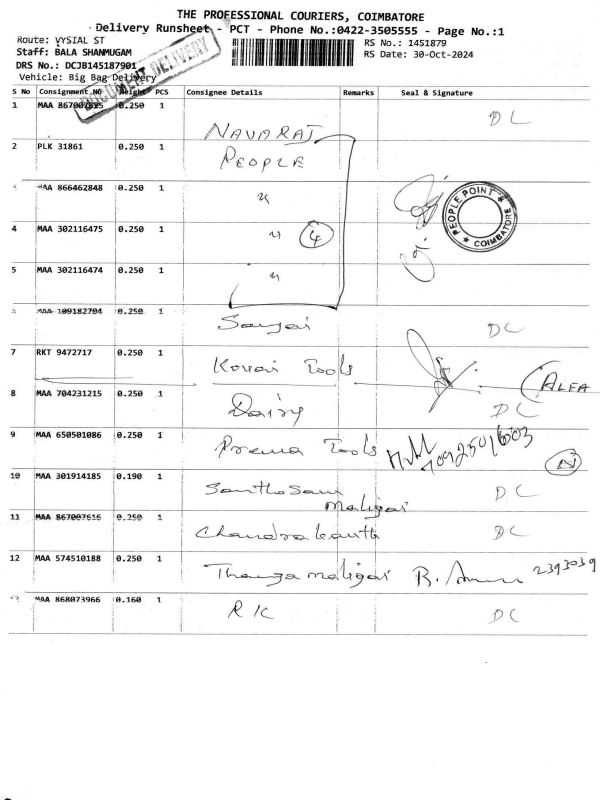 THE PROFESSIONAL COURIERS, COIMBATORE
Delivery Runsheet - PCT - Phone No.:0422-3505555 - Page No.:1
Route: VYSIAL ST
RS No.: 1451879
Staff: BALA SHANMUGAM
RS Date: 30-Oct-2024
DRS No.: DCJB145187901
Vehicle: Big Bag Delivery
DOCUMENT DELIVERY
S No Consignment No Weight PCS Consignee Details Remarks Seal & Signature
1 MAA 867007625 0.250 1 NAVARAJ DC
2 PLK 31861 0.250 1 PEOPLE
MAA 866462848 0.250 1 "
PEOPLE POINT
COIMBATORE
4 MAA 302116475 0.250 1 " 4
5 MAA 302116474 0.250 1 "
MAA 109182704 0.250 1 Sanjai DC
7 RKT 9472717 0.250 1 Kovai Tools
ALFA
8 MAA 704231215 0.250 1 Dairy DC
9 MAA 650501086 0.250 1 Prema Tools
10 MAA 301914185 0.190 1 Santhosam Maligai DC
11 MAA 867007616 0.250 1 Chandrakanth DC
12 MAA 574510188 0.250 1 Thanga maligai 2393039
MAA 868073966 0.160 1 RK DC